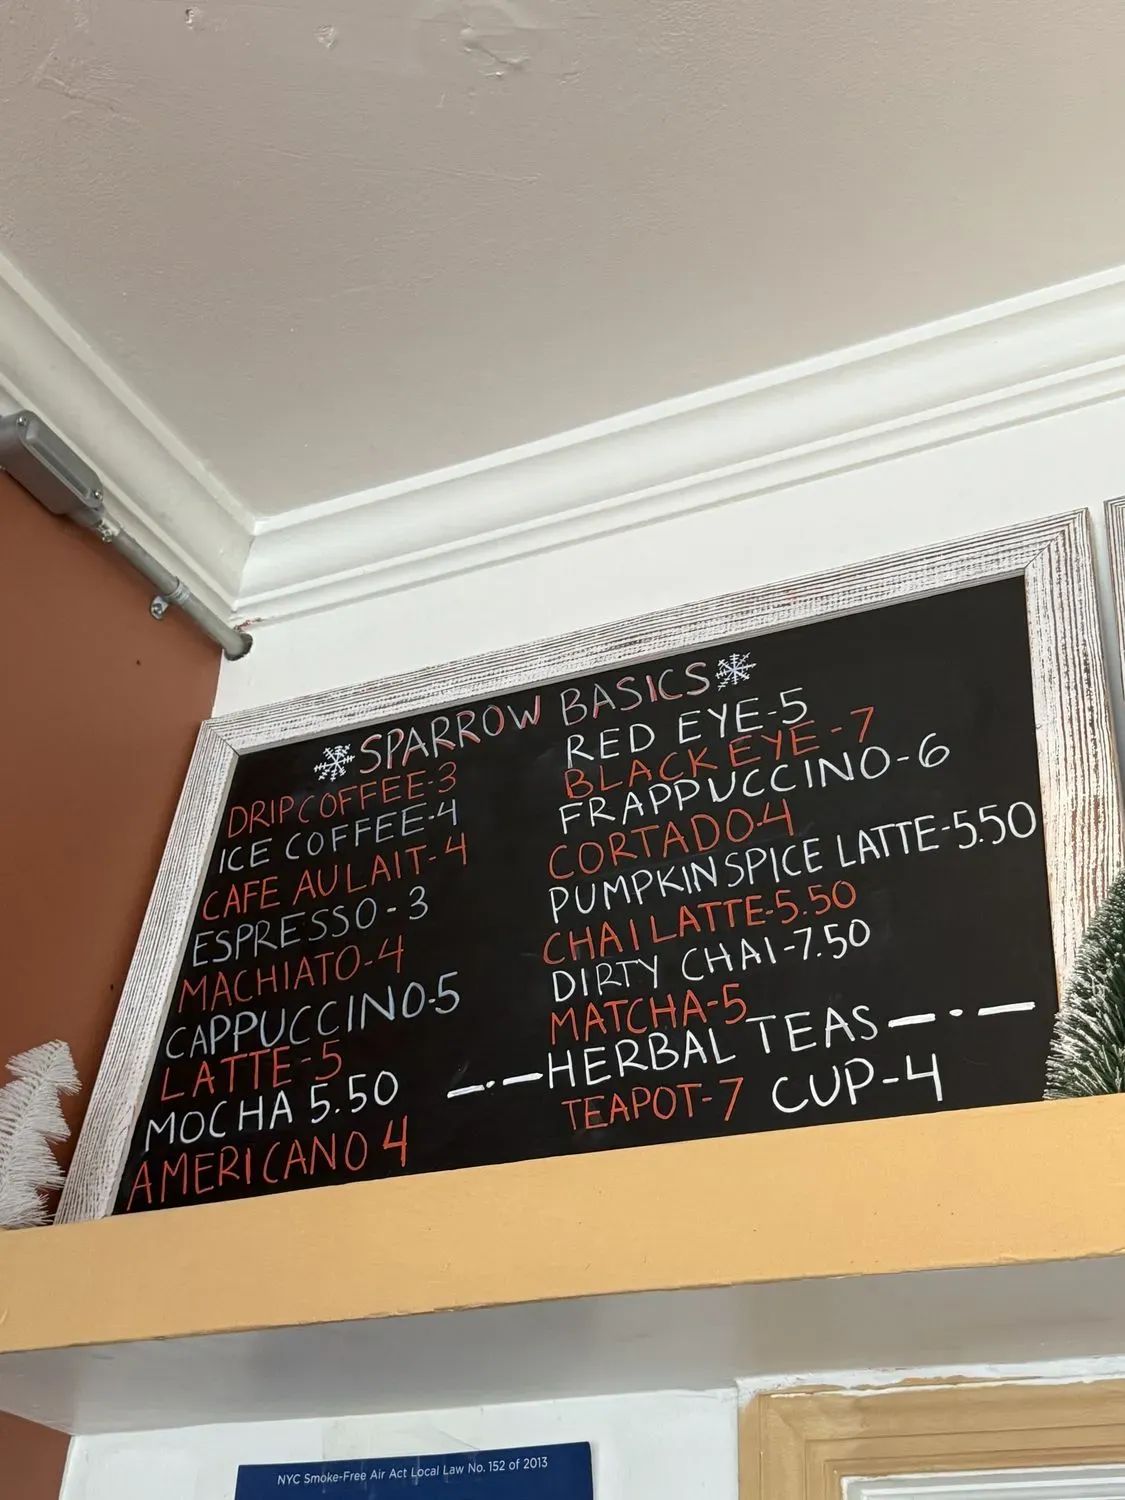 SPARROW BASICS
DRIP COFFEE-3
ICE COFFEE-4
CAFE AU LAIT-4
ESPRESSO-3
MACHIATO-4
CAPPUCCINO-5
LATTE-5
MOCHA 5.50
AMERICANO 4
RED EYE-5
BLACK EYE-7
FRAPPUCCINO-6
CORTADO-4
PUMPKIN SPICE LATTE-5.50
CHAI LATTE-5.50
DIRTY CHAI-7.50
MATCHA-5
HERBAL TEAS
TEAPOT-7 CUP-4
NYC Smoke-Free Air Act Local Law No. 152 of 2013